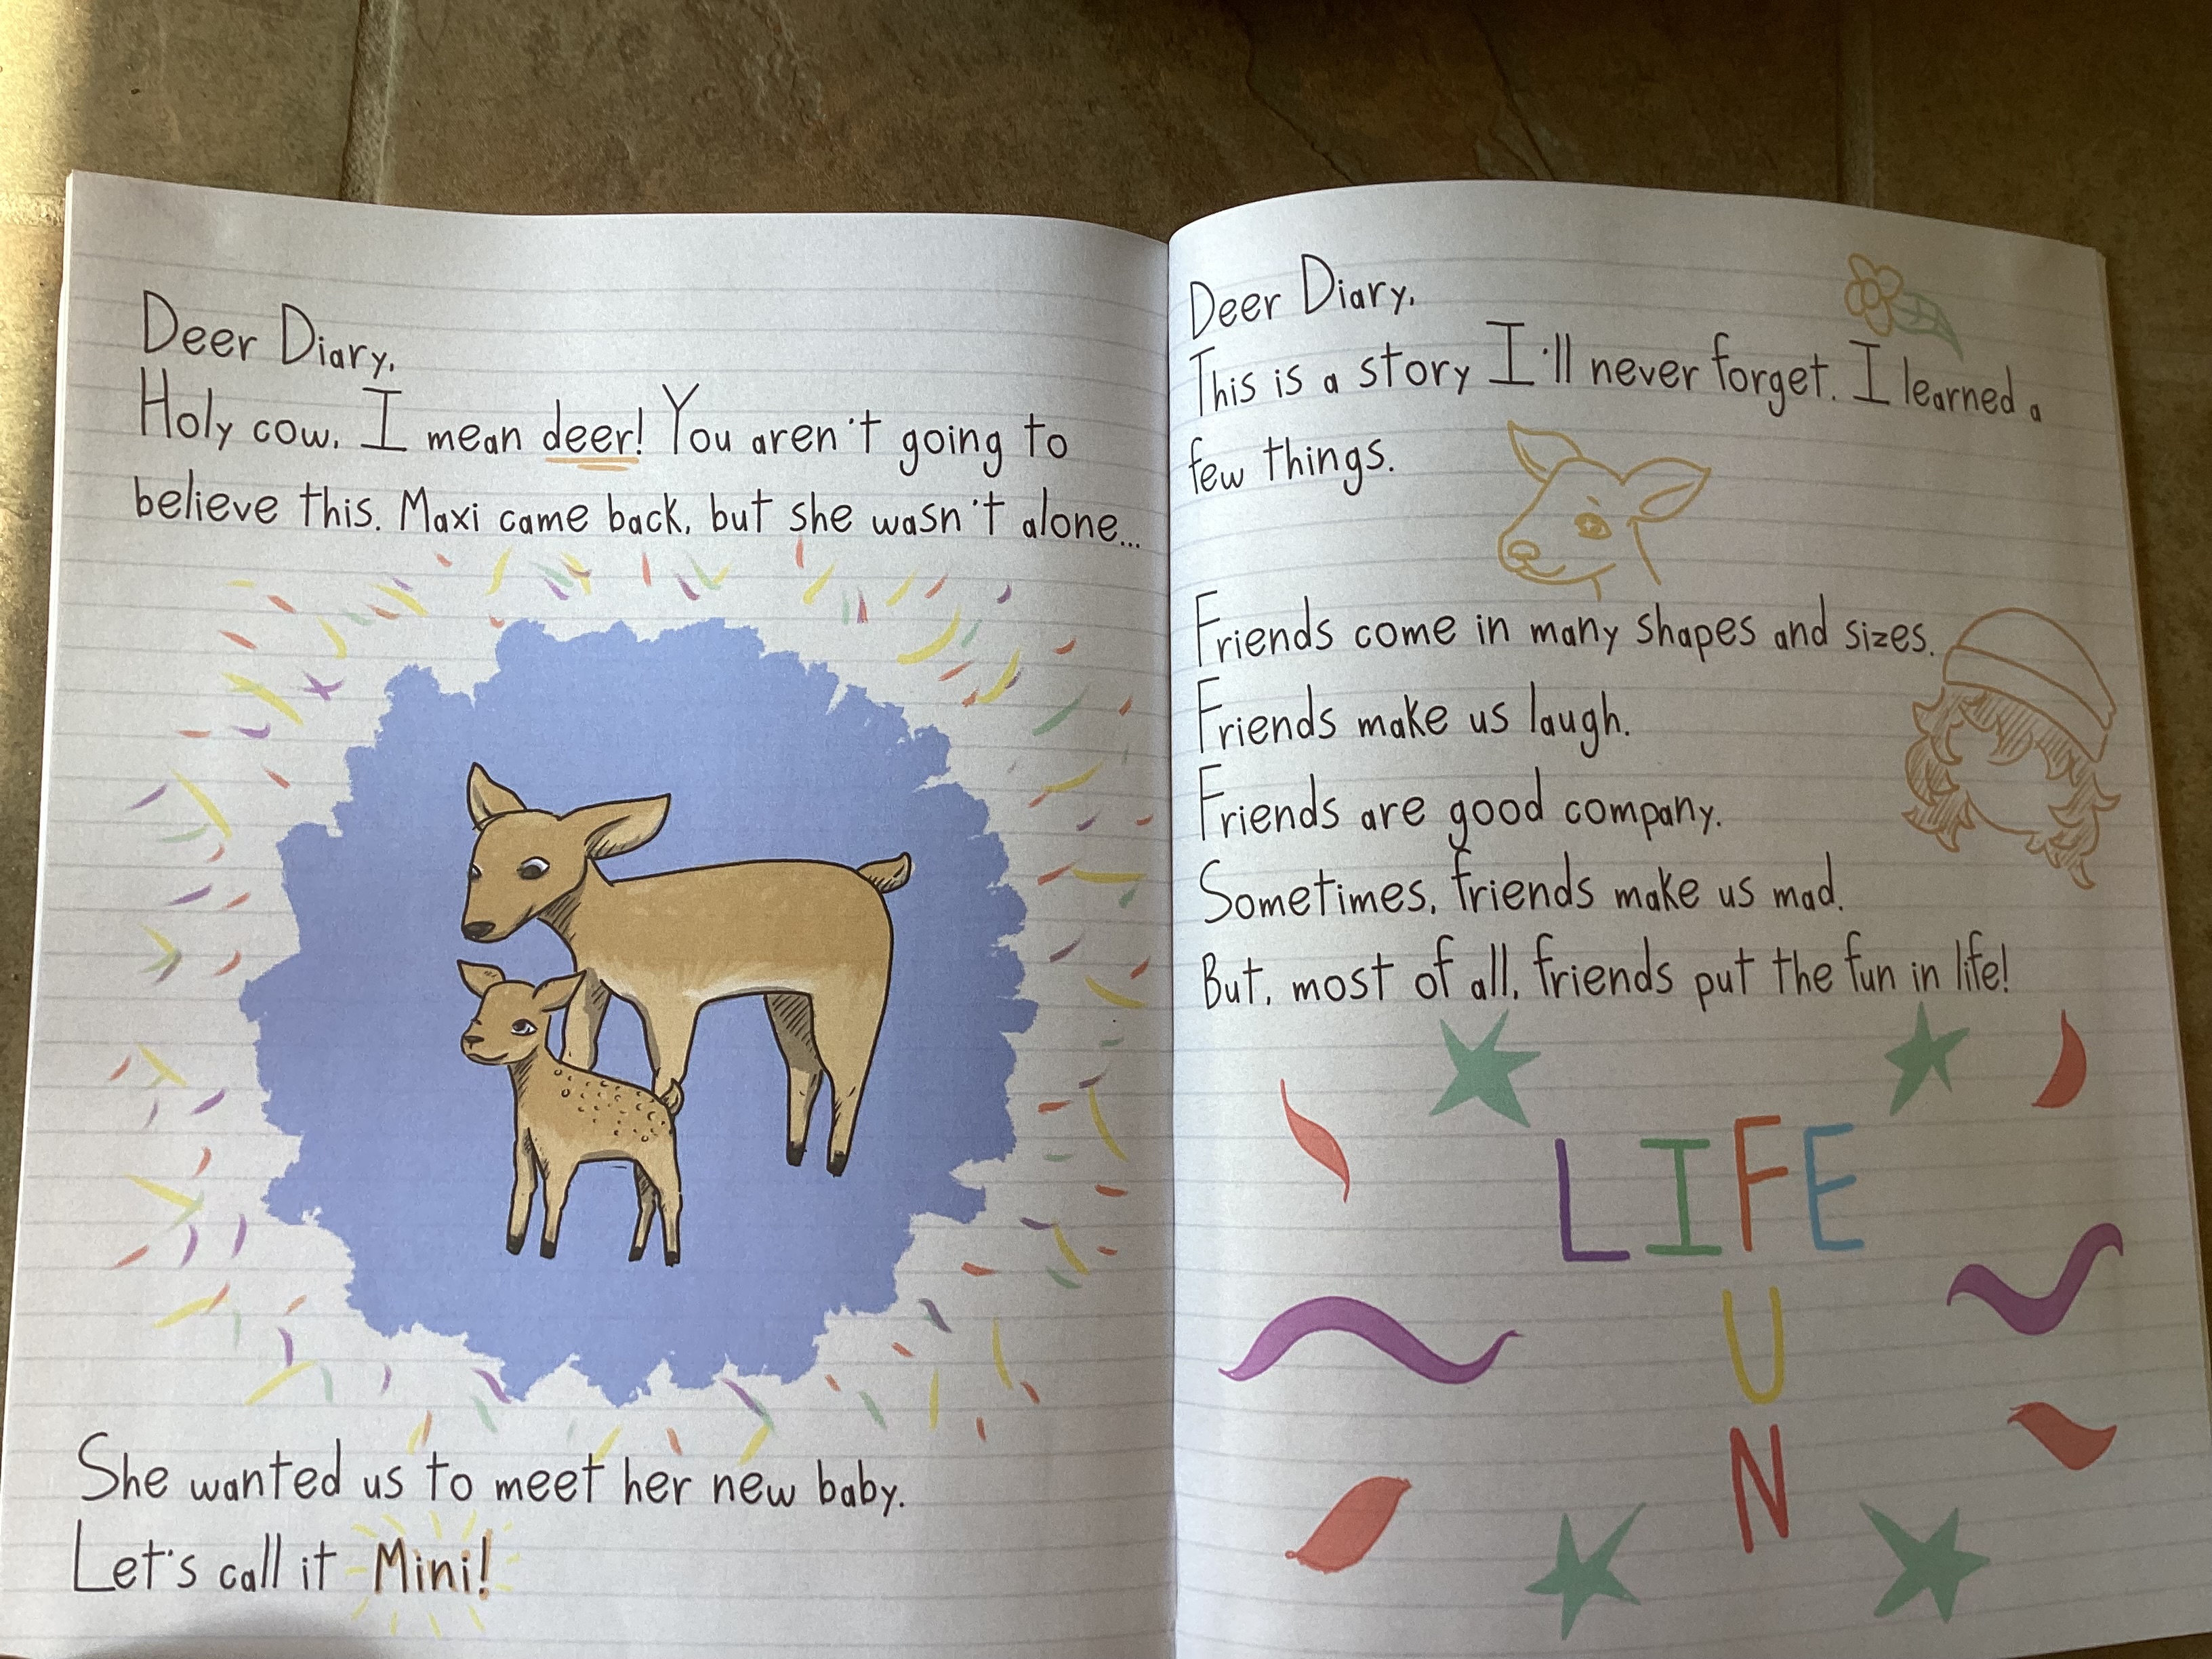 Deer Diary,
Holy cow, I mean deer! You aren't going to
believe this. Maxi came back, but she wasn't alone...
She wanted us to meet her new baby.
Let's call it Mini!
Deer Diary,
This is a story I'll never forget. I learned a
few things.
Friends come in many shapes and sizes.
Friends make us laugh.
Friends are good company.
Sometimes, friends make us mad.
But, most of all, friends put the fun in life!
LIFE
U
N